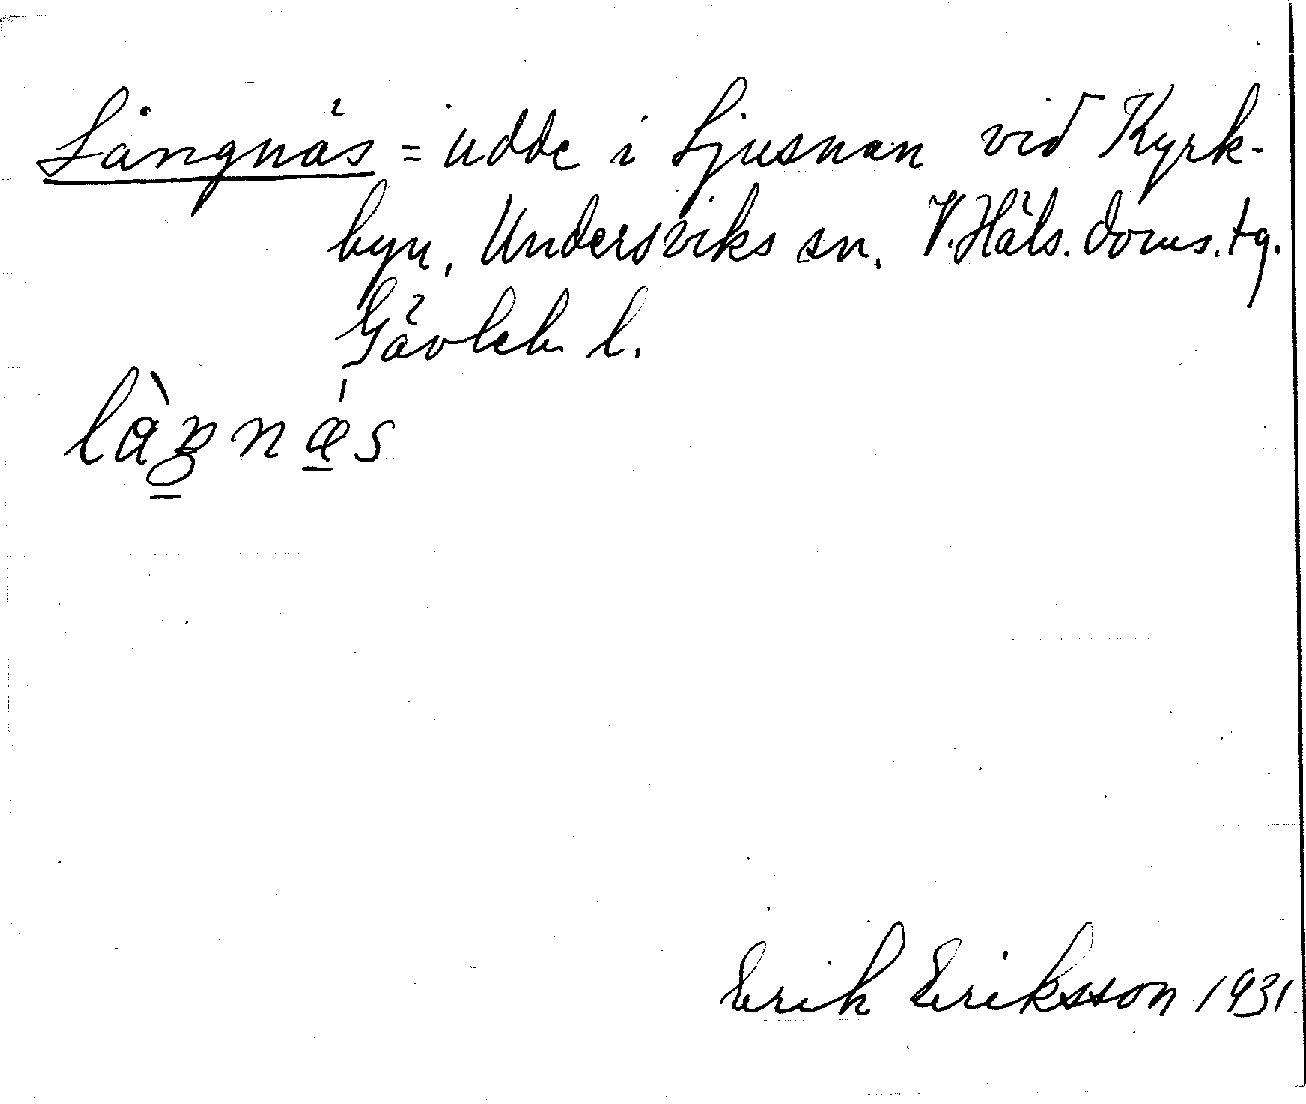 Långnäs = udde i Ljusnan vid Kyrk-
byn, Undersviks sn. V. Häls. doms. tg.
Gävleb. l.
làŋnǽ̠s
Erik Eriksson 1931